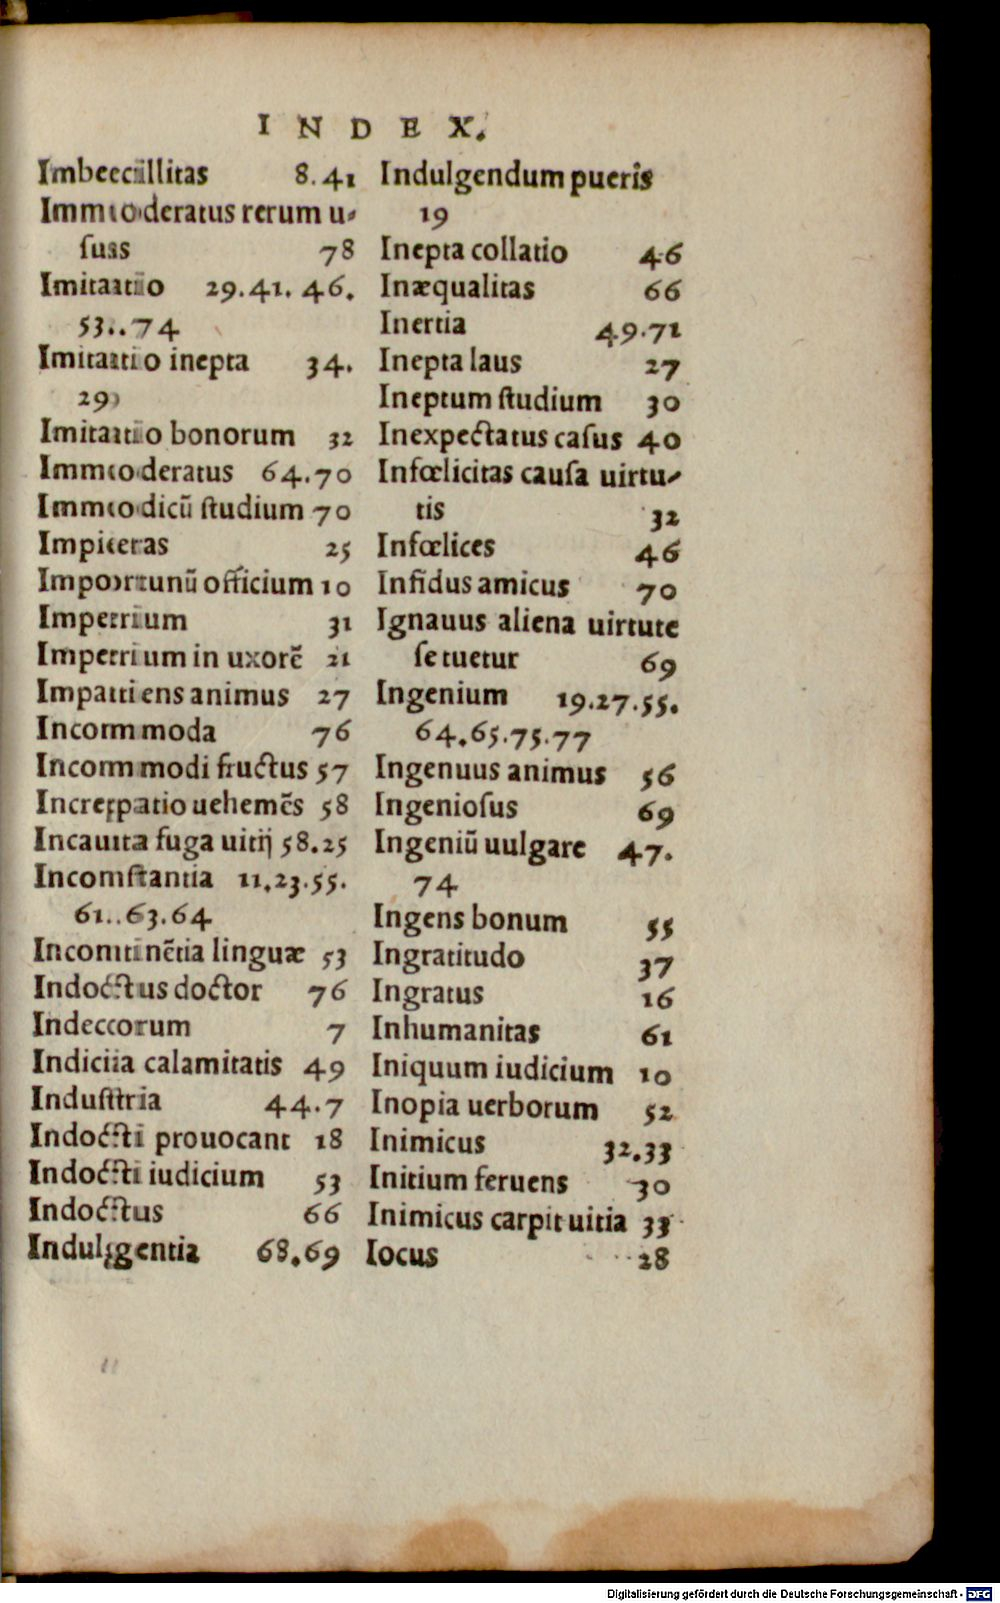 INDEX.
Imbecillitas 8.41
Immoderatus rerum u⸗
ſus 78
Imitatio 29.41. 46.
53..74
Imitatio inepta 34.
29
Imitatio bonorum 32
Immoderatus 64.70
Immodicũ ſtudium 70
Impietas 25
Importunũ officium 10
Imperium 31
Imperium in uxorẽ 21
Impatiens animus 27
Incommoda 76
Incommodi fructus 57
Increpatio uehemẽs 58
Incauta fuga uitij 58.25
Inconſtantia 11.23.55.
61..63.64
Incontinẽtia linguæ 53
Indoctus doctor 76
Indecorum 7
Indicia calamitatis 49
Induſtria 44.7
Indocti prouocant 18
Indocti iudicium 53
Indoctus 66
Indulgentia 68.69
Indulgendum pueris
19
Inepta collatio 46
Inæqualitas 66
Inertia 49.71
Inepta laus 27
Ineptum ſtudium 30
Inexpectatus caſus 40
Infœlicitas cauſa uirtu⸗
tis 32
Infœlices 46
Infidus amicus 70
Ignauus aliena uirtute
ſe tuetur 69
Ingenium 19.27.55.
64.65.75.77
Ingenuus animus 56
Ingenioſus 69
Ingeniũ uulgare 47.
74
Ingens bonum 55
Ingratitudo 37
Ingratus 16
Inhumanitas 61
Iniquum iudicium 10
Inopia uerborum 52
Inimicus 32.33
Initium feruens 30
Inimicus carpit uitia 33
Iocus 28
Digitalisierung gefördert durch die Deutsche Forschungsgemeinschaft - DFG